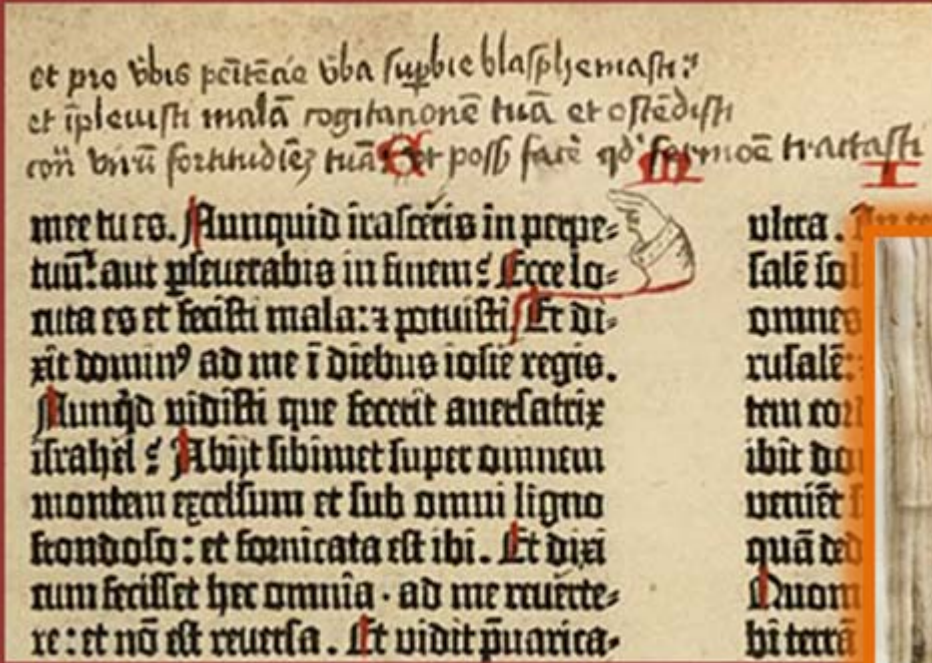 et pro v̄bis pēitēcie v̄ba suꝑbie blasphemasti:
et īpleuisti malā cogitationē tuā et ostēdisti
cōn̄ virū fortitudīeȝ tuā Et poss facē qd' sermoē tractasti
mee tu es. Nunquid irascēris in perpe-
tuū: aut ꝑseuerabis in finem? Ecce lo-
cuta es et fecisti mala: ⁊ potuisti. Et di-
xit dominꝰ ad me ī diebus iosie regis.
Nunqͥd vidisti que fecerit auersatrix
israhel? Abijt sibimet super omnem
montem excelsum et sub omni ligno
frondoso: et fornicata est ibi. Et dixi
cum fecisset hec omnia · ad me reuerte-
re: et nō est reuersa. Et vidit p̄uarica-
vltra.
salē
omnes
rusalē:
tem
ibit
veniēt
quā
Quom
bi terrā